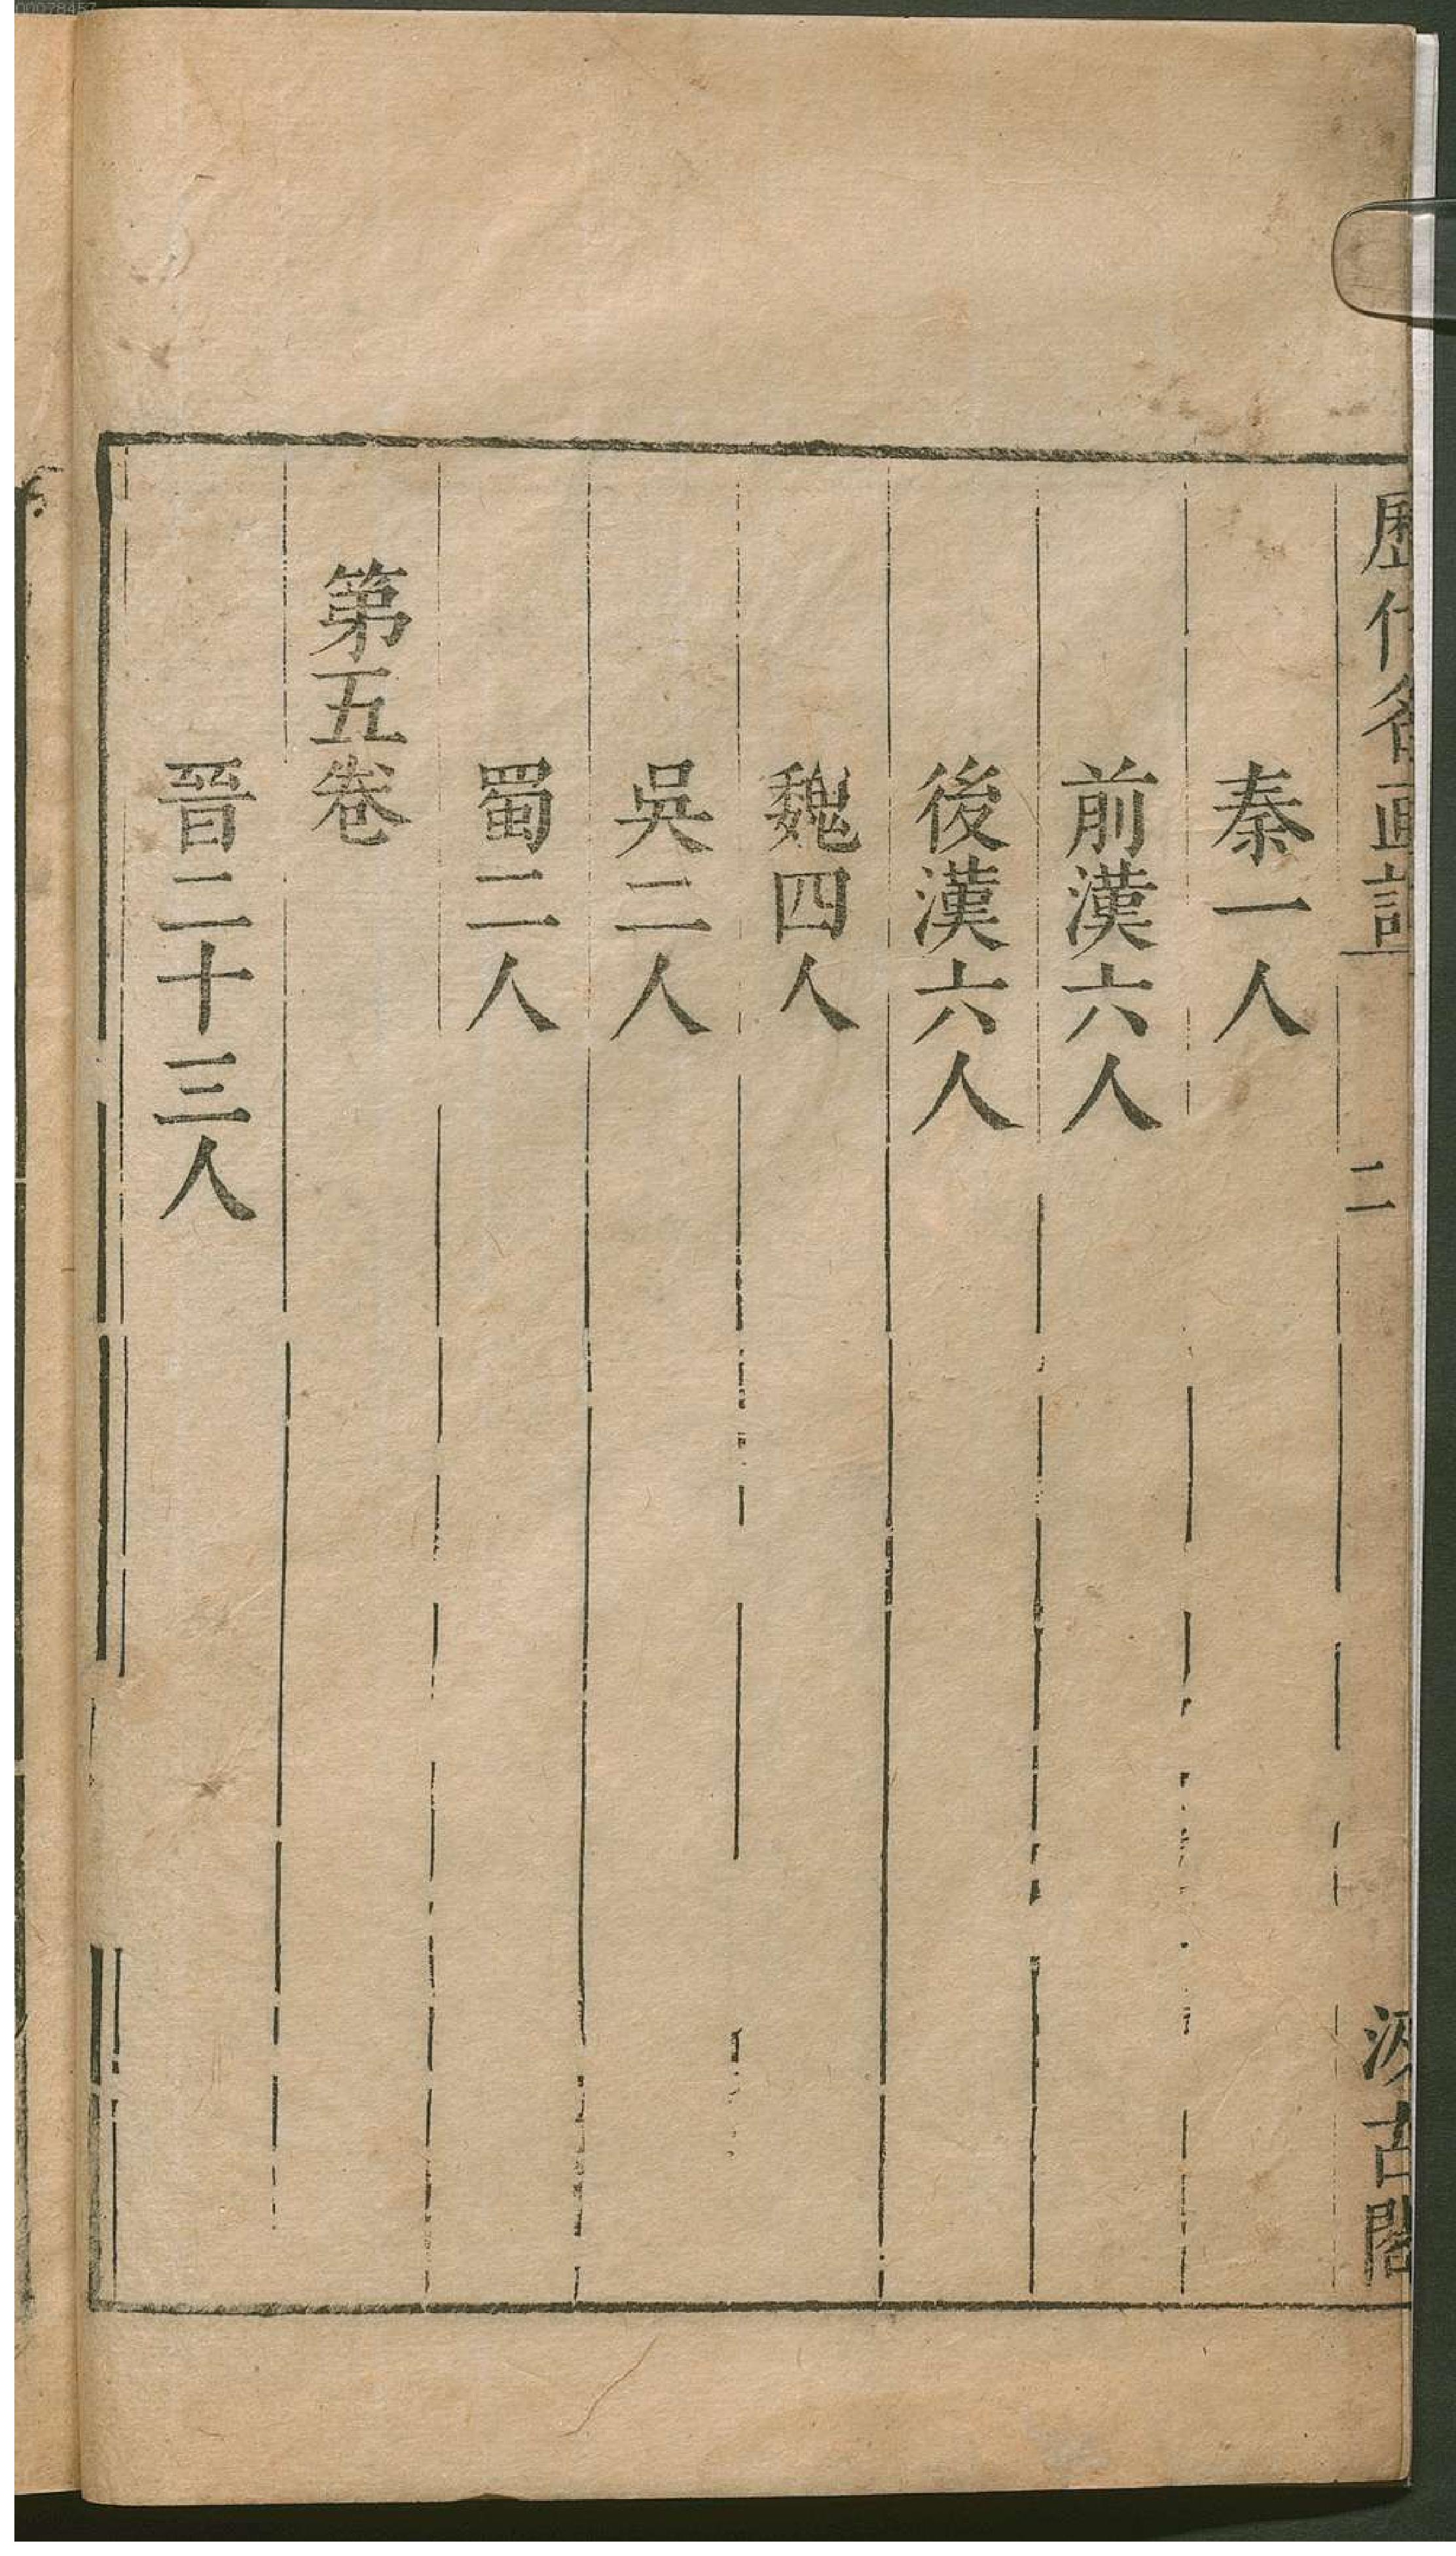 歷代名画記
二
汲古閣
秦一人
前漢六人
後漢六人
魏四人
吳二人
蜀二人
第五卷
晉二十三人